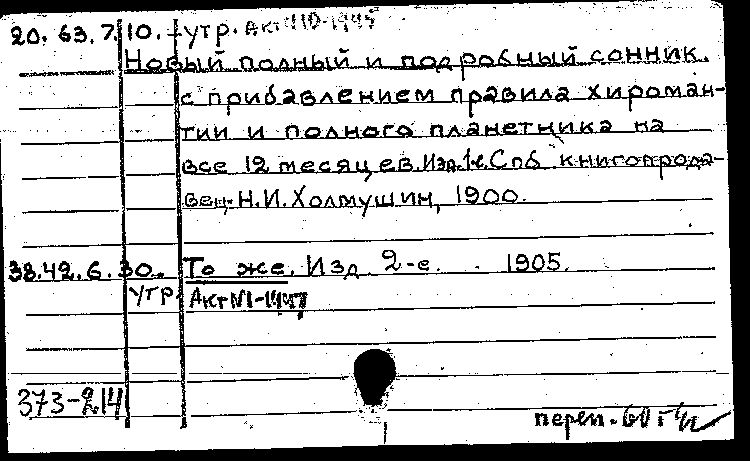 20. 63. 7. 10. + утр. Акт №10-1945
Новый полный и подробный сонник.
с прибавлением правила хироман-
тии и полного планетника на
все 12 месяцев. Изд. 1-е. Спб книгопрода-
вец. Н. И. Холмушин, 1900.
38. 42. 6. 30. То же. Изд 2-е. 1905.
утр. Акт №1-
373-2.14
переп.